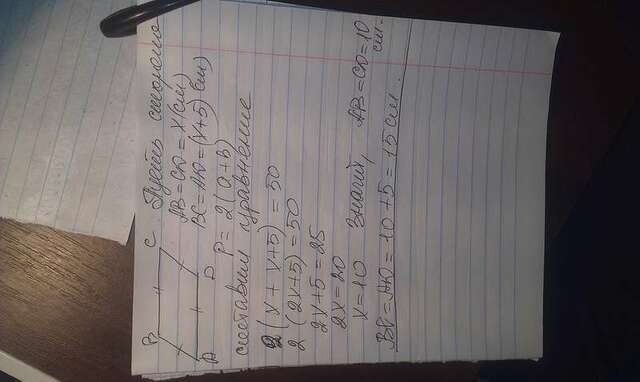 B C Пусть сторона
AB=CD=X(см)
BC=AD=(X+5)(см)
A D P=2(a+B)
составим уравнение
2(X+X+5)=50
2(2X+5)=50
2X+5=25
2X=20
X=10 значит, AB=CD=10
см.
BC=AD=10+5=15см.